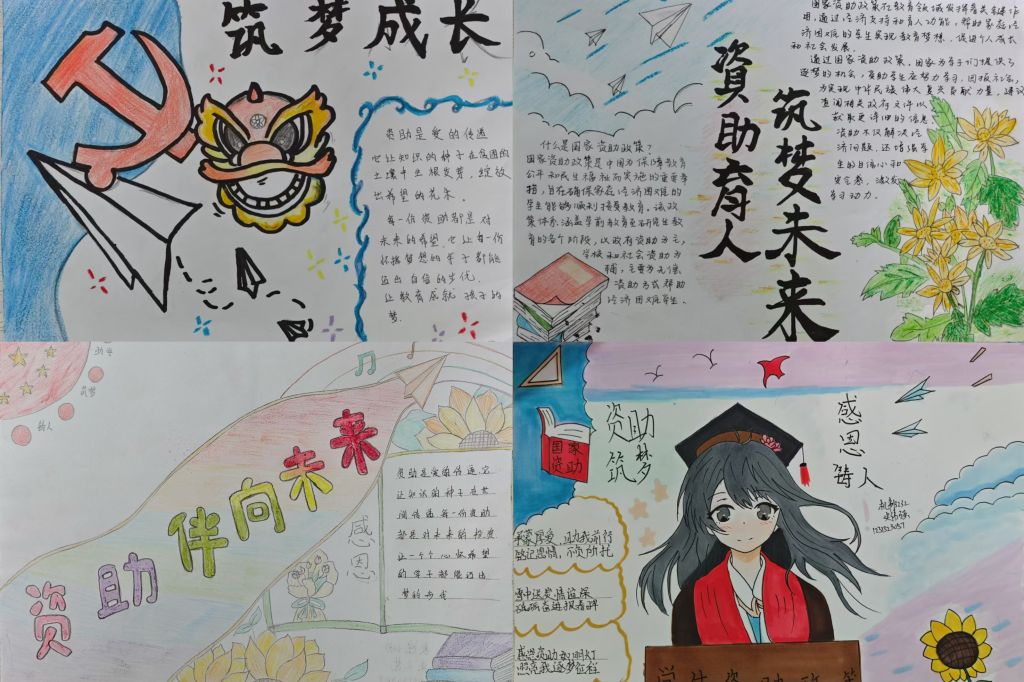 筑梦成长
资助是爱的传递
它让知识的种子在贫困的
土壤中生根发芽，绽放
出希望的花朵。
每一份资助都是对
未来的希望，它让每一份
怀揣梦想的学子都能
迈出自信的步伐.
让教育成就孩子的
梦.
国家资助政策在教育领域发挥着关键作
用，通过经济支持和育人功能，帮助家庭经
济困难的学生实现教育梦想，促进个人成长
和社会发展.
通过国家资助政策，国家为学子们提供了
逐梦的机会，资助学生应努力学习，回报社会，
为实现中华民族伟大复兴贡献力量，建议
查阅相关政府文件以
获取更详细的信息
资助不仅解决经
济问题，还增强学
生的自信心和
安全感，激发
学习动力.
資助育人
筑梦未来
什么是国家资助政策？
国家资助政策是中国为保障教育
公平和民生福祉而实施的重要举
措，旨在确保家庭经济困难的
学生能够顺利接受教育，该政
策体系涵盖学前教育至研究生教
育的各个阶段，以政府资助为主，
学校和社会资助为
辅，主要为无偿
资助方式帮助
经济困难学生.
助学
筑梦
铸人
资助伴向未来
感恩
资助是爱的传递,它
让知识的种子在贫
都是对未来的投资
让一个个心怀希望
的学子都能迈出
梦的步伐
国家
资助
资助
筑梦
感恩
铸人
铭记恩情，不负所托
感党资助如明灯
照亮我逐梦征程
学生资助政策